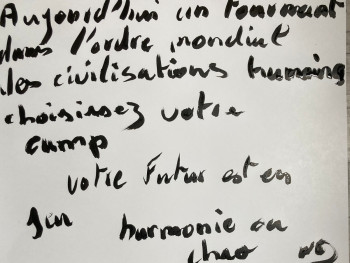 Aujourd'hui un tournant
dans l'ordre mondial
des civilisations humains
choisissez votre
camp
votre Futur est en
Jeu harmonie ou
chao